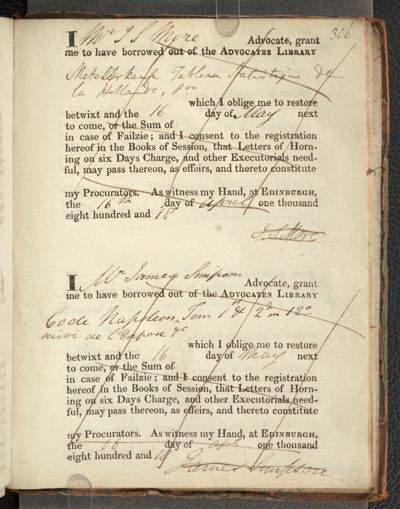 306
I Mr J S More Advocate, grant
me to have borrowed out of the ADVOCATES LIBRARY
Metelerkamp Tableau Statistique de
la Hollande, 8vo
which I oblige me to restore
betwixt and the 16 day of May next
to come, or the Sum of
in case of Failzie; and I consent to the registration
hereof in the Books of Session, that Letters of Horn-
ing on six Days Charge, and other Executorials need-
ful, may pass thereon, as effeirs, and thereto constitute
my Procurators. As witness my Hand, at EDINBURGH,
the 16th day of April one thousand
eight hundred and 18
J. S. More
I Mr James Simpson
Advocate, grant
me to have borrowed out of the ADVOCATES LIBRARY
Code Napoleon Tom 1st & 2d in 12o
suivi de l'Expose &c
which I oblige me to restore
betwixt and the 16 day of May next
to come, or the Sum of
in case of Failzie; and I consent to the registration
hereof in the Books of Session, that Letters of Horn-
ing on six Days Charge, and other Executorials need-
ful, may pass thereon, as effeirs, and thereto constitute
my Procurators. As witness my Hand, at EDINBURGH,
the 16 day of April one thousand
eight hundred and 18
James Simpson